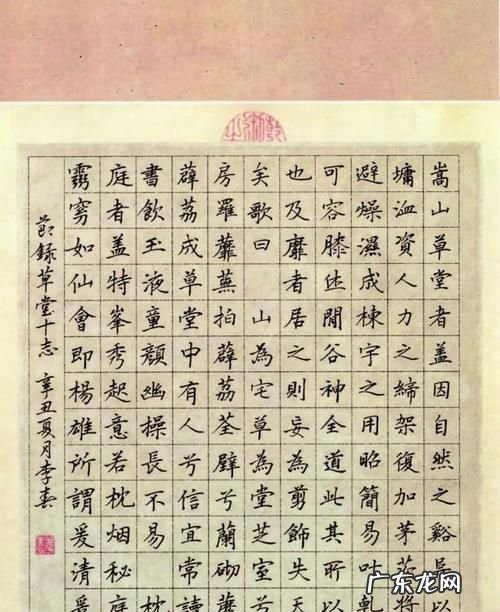 嵩山草堂者盖因自然之谿以
墉洫資人力之締架復加茅茨將
避燥濕成棟宇之用昭簡易叶乾
可容膝休閒谷神全道此其所以
也及靡者居之則妄為剪飾失天
矣歌曰 山為宅草為堂芝室兮
房羅蘼蕪拍薜荔荃壁兮蘭砌
薜荔成草堂中有人兮信宜常讀
書飲玉液童顏幽操長不易 枕
庭者盖特峯秀起意若枕烟秘庭
如仙會即楊雄所謂爰清爰
節錄草堂十志 辛丑夏月李春
广东龙网